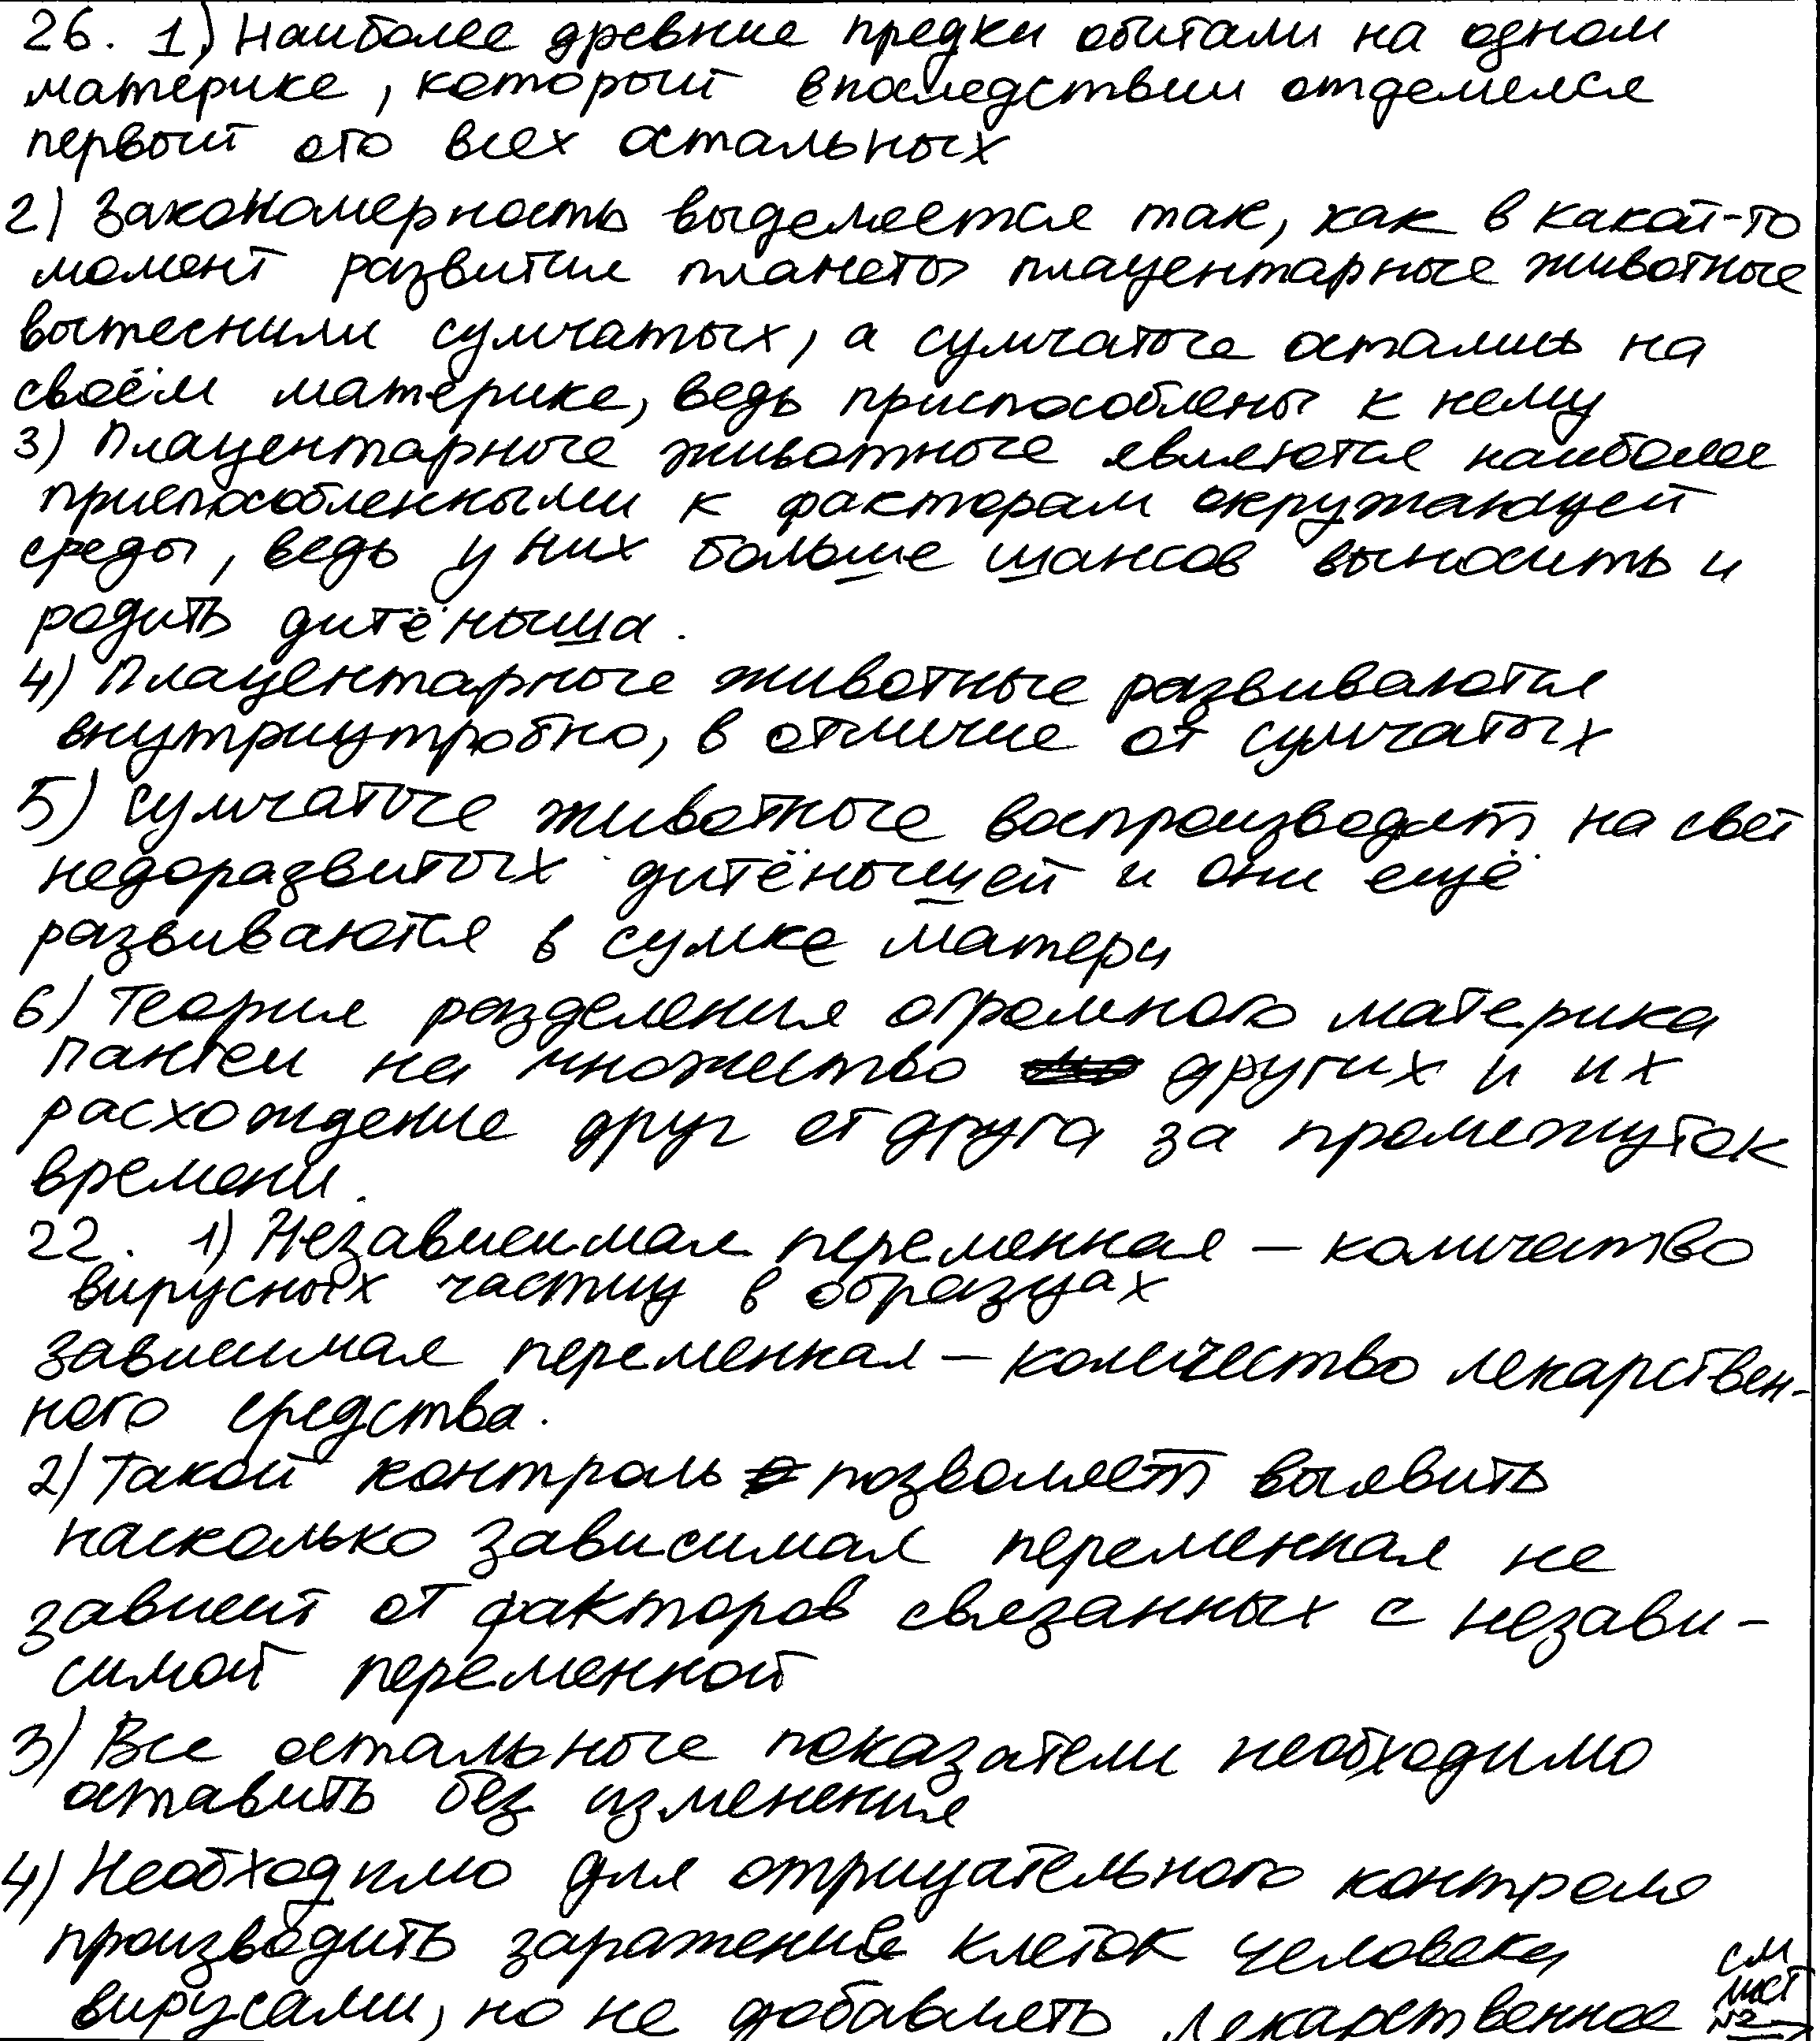 26. 1) Наиболее древние предки обитали на одном
материке, который впоследствии отделился
первый ото всех остальных
2) Закономерность выделяется так, как в какой-то
момент развития планеты плацентарные животные
вытеснили сумчатых, а сумчатые остались на
своём материке, ведь приспособлены к нему
3) Плацентарные животные являются наиболее
приспособленными к факторам окружающей
среды, ведь у них больше шансов выносить и
родить дитёныша.
4) Плацентарные животные развиваются
внутриутробно, в отличие от сумчатых
5) Сумчатые животные воспроизводят на свет
недоразвитых дитёнышей и они ещё
развиваются в сумке матери
6) Теория разделения огромного материка
Пангеи на множество других и их
расхождение друг от друга за промежуток
времени.
22. 1) Независимая переменная – количество
вирусных частиц в образцах
Зависимая переменная – количество лекарствен-
ного средства.
2) Такой контроль позволяет выявить
насколько зависимая переменная не
зависит от факторов связанных с незави-
симой переменной
3) Все остальные показатели необходимо
оставить без изменения
4) Необходимо для отрицательного контроля
производить заражение клеток человека
вирусами, но не добавлять лекарственное
см
лист
№2